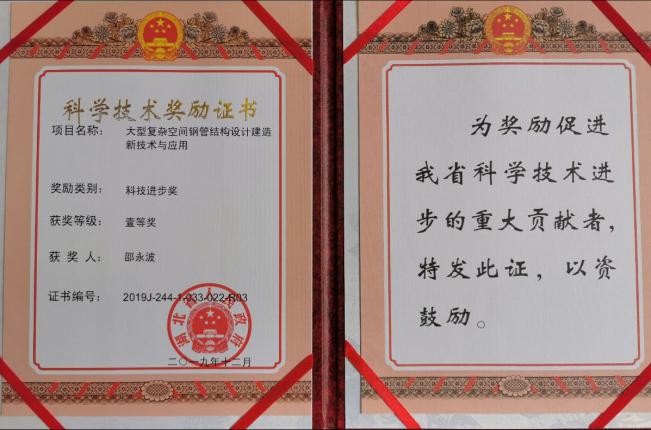 科学技术奖励证书
项目名称： 大型复杂空间钢管结构设计建造
新技术与应用
奖励类别： 科技进步奖
获奖等级： 壹等奖
获 奖 人： 邵永波
证书编号： 2019J-244-1-033-022-R03
湖北省人民政府
二〇一九年十二月
为奖励促进
我省科学技术进
步的重大贡献者，
特发此证，以资
鼓励。